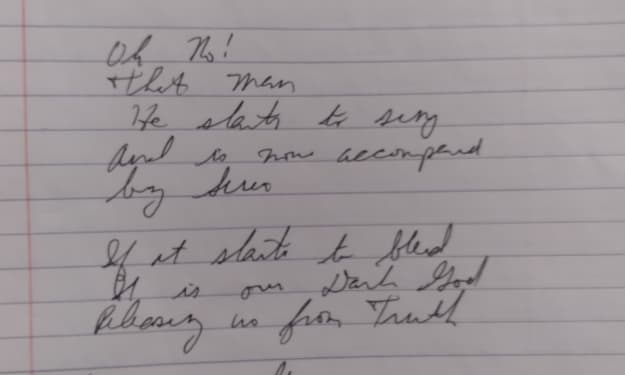 Oh No!
that man
He starts to sing
And is now accompend
by
If it starts to bleed
It is our Dark God
Releasing us from Truth